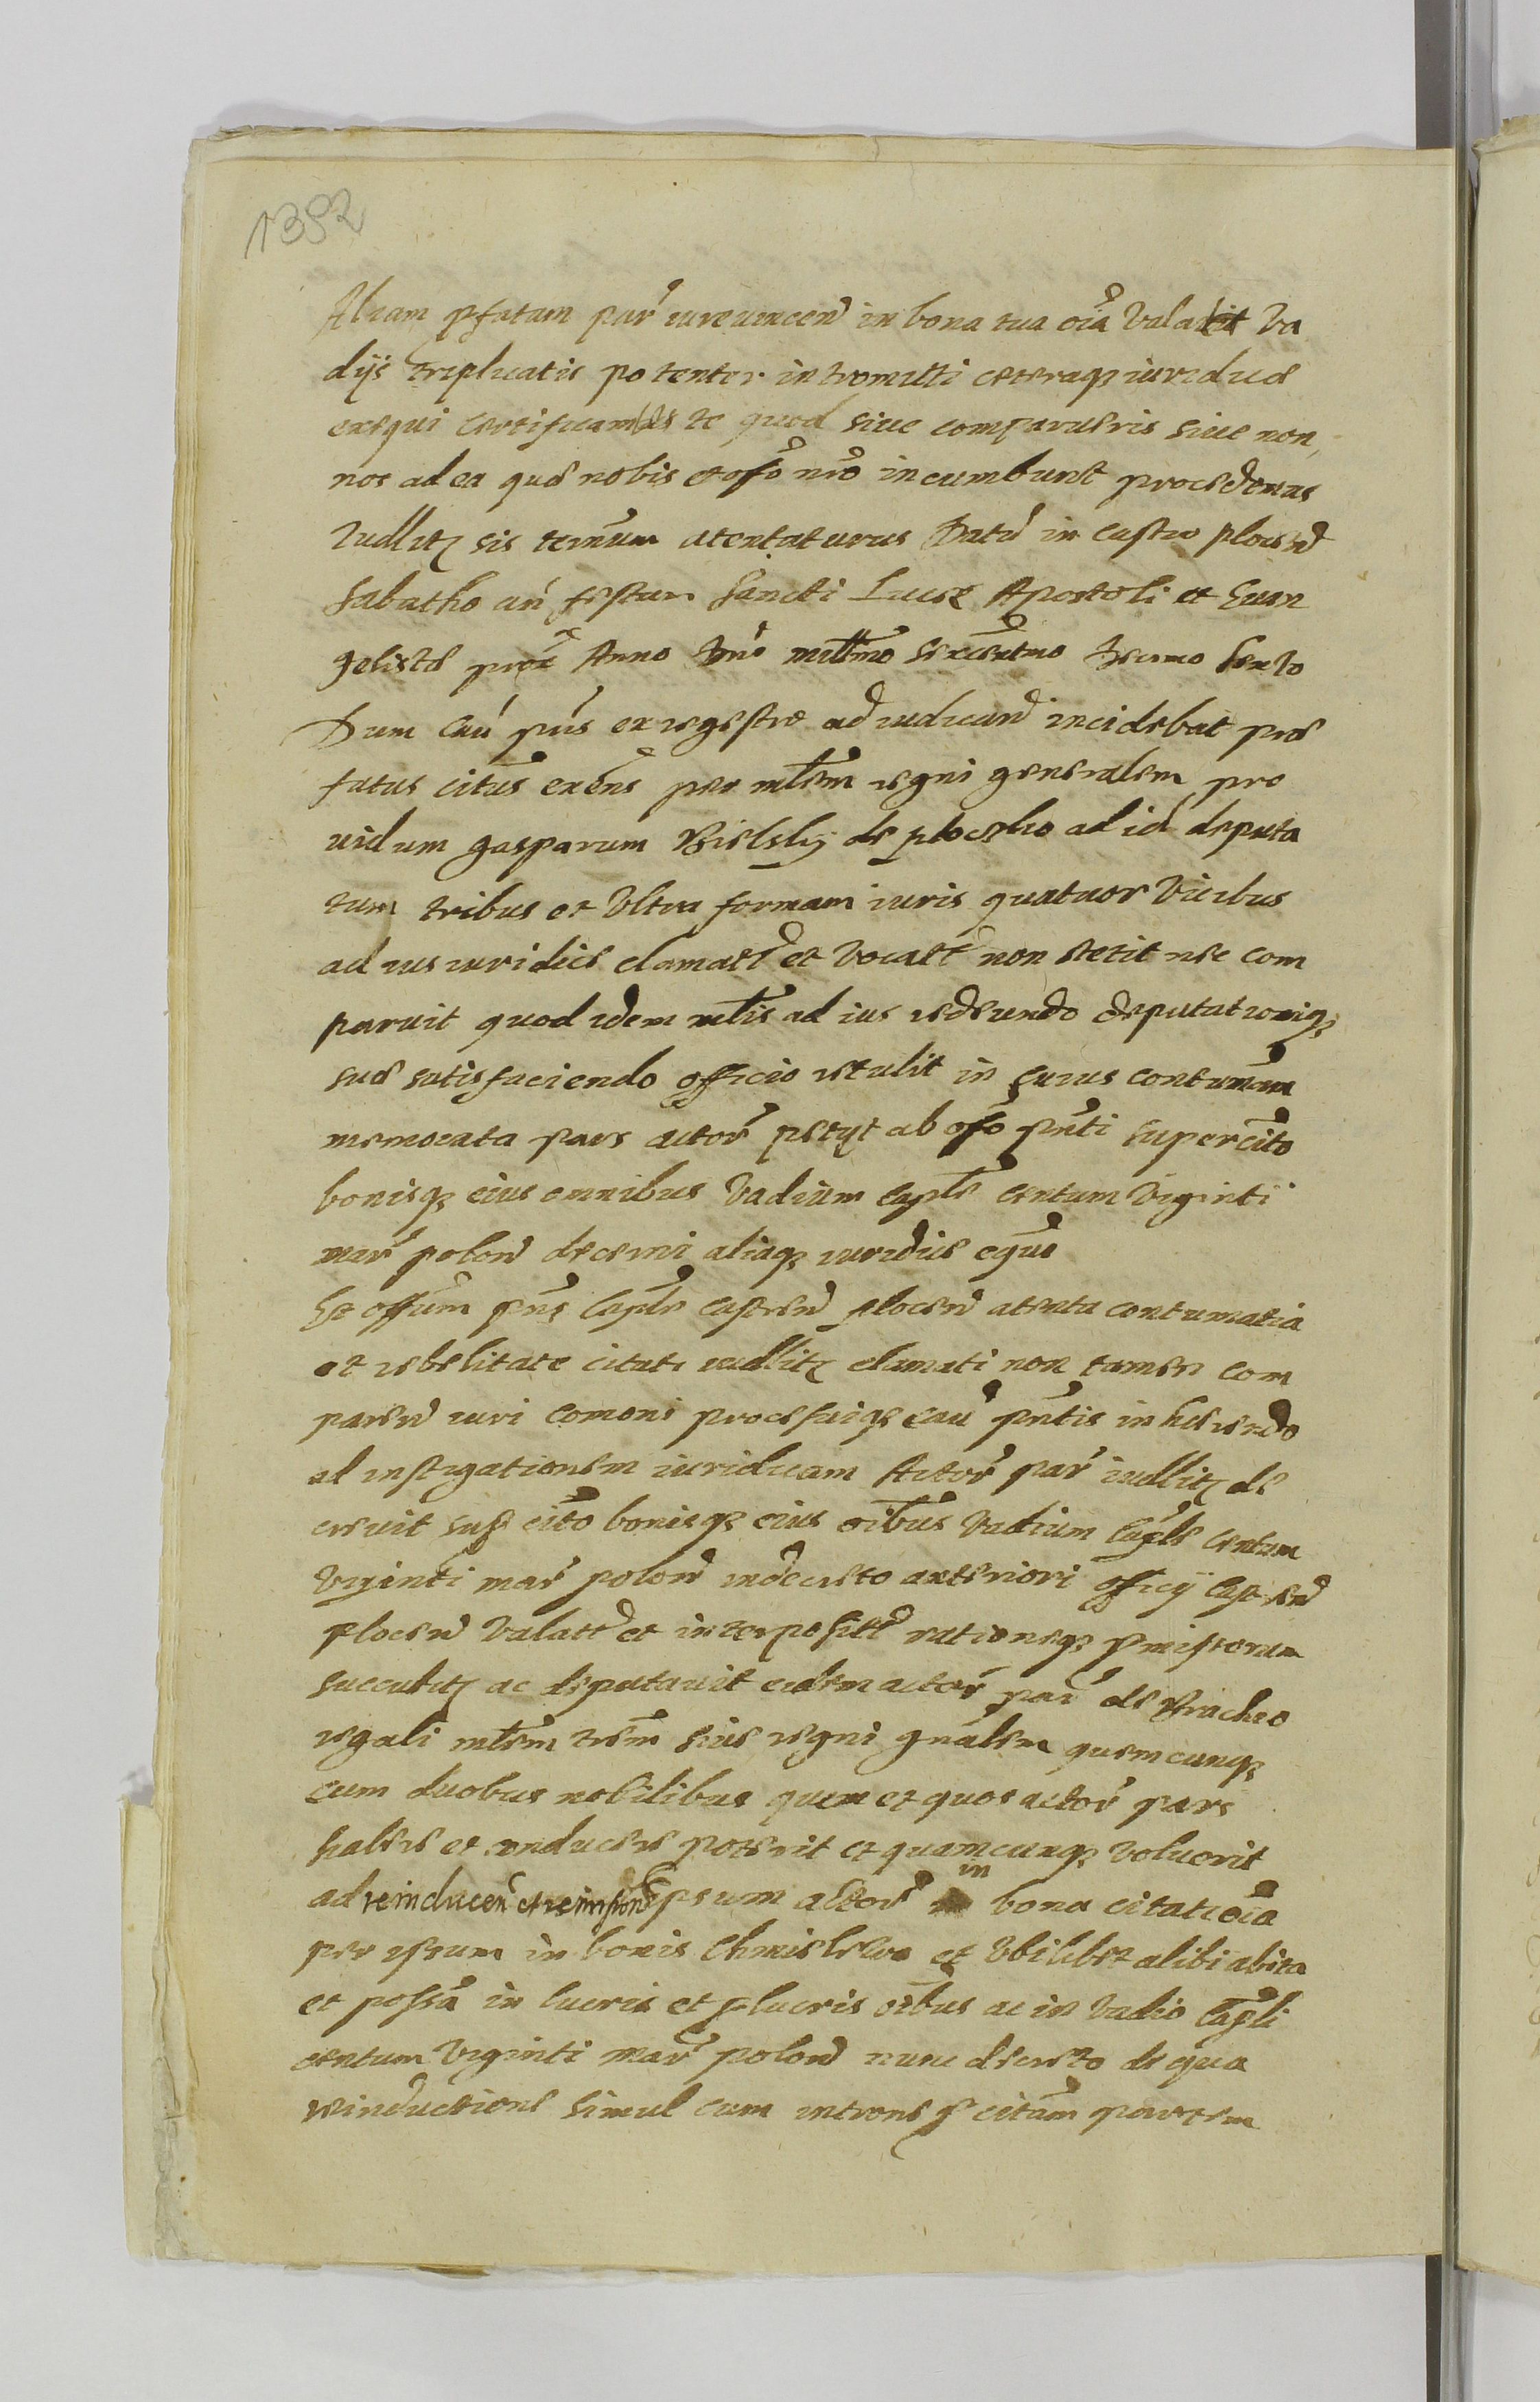 1392
Aliam pfatam par iurevincen in bona tua oia Vala Va
dijs triplicatis potenter intromitti ceteraqz iuridice
exequi Certificamus te quod siue comparueris siue non
nos ad ea que nobis et offo nro incumbunt procedemus
Iudlitz sis termum atentaturus Datu in castro plocen
Sabatho an festum Sancti Lucae Apostoli et Euan
gelistae prox Anno Dni millmo sexcentmo decimo sexto
Dum cau pns ex regestro ad iudicand incidebat prae
fatus citus exens per mlem regni generalem pro
uidum gasparum Bielsky de ploczko ad id deputa
tum tribus et Vltra formam iuris quatuor Vicibus
ad ius iuridice clamatt et Vocatt non stetit nec com
paruit quod idem mlis ad ius redeundo deputationiqz
suae satisfaciendo officio retulit in cuius contumam
memorata pars actor petijt ab offo pnti super cito
bonisqz eius omnibus Vadium caple centum Viginti
mar polon decerni aliaqz iuridice equi
Et offum pns Caple castren plocen atenta contumatia
et rebelitate citati iudlitz clamati non tamen com
paren iuri comoni processuiqz cau pntis inherendo
ad instigationem iuridicam Actor par iudlitz de
creuit sup cito bonisqz eius oibus Vadium Caple centum
Viginti mar polon in decreto anteriori officij Castren
plocen Valatt et interpositt rationeqz pmissorum
succubitz ac deputauit eidem actor par de
regali mlem rem siue regni gnalem quemcunqz
cum duobus nobilibus quem et quos actor pars
habere et conducere poterit et quamcunqz Voluerit
ad reinducen et reimpon ipsum actor in bona citati oia
per ipsum in bonis et Vbilibet alibi abita
et possa in lucris et plucris oibus ac in Vadio Capli
centum Viginti mar polon nunc decreto de qua
reinductione simul cum introne p citam partem